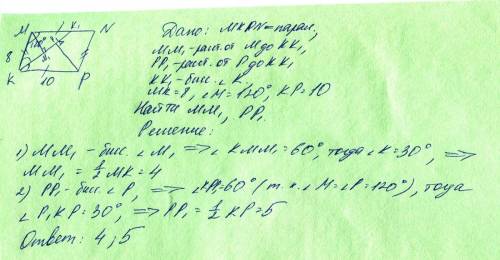 M K₁ N
120°
8
K 10 P
Дано: MKPN – парал.,
MM₁ – раст. от M до KK₁,
PP₁ – раст. от P до KK₁
KK₁ – бис. ∠K.
MK = 8, ∠M = 120°, KP = 10
Найти MM₁, PP₁.
Решение:
1) MM₁ – бис. ∠M, ⇒ ∠KMM₁ = 60°, тогда ∠K = 30°, ⇒
MM₁ = ½ MK = 4
2) PP₁ – бис. ∠P, ⇒ ∠KPP₁ = 60° (т. к. ∠M = ∠P = 120°), тогда
∠P₁KP = 30°, ⇒ PP₁ = ½ KP = 5
Ответ: 4; 5